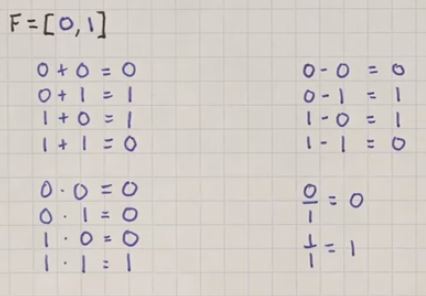 F=[0,1]
0+0=0
0+1=1
1+0=1
1+1=0
0-0=0
0-1=1
1-0=1
1-1=0
0·0=0
0·1=0
1·0=0
1·1=1
0/1=0
1/1=1